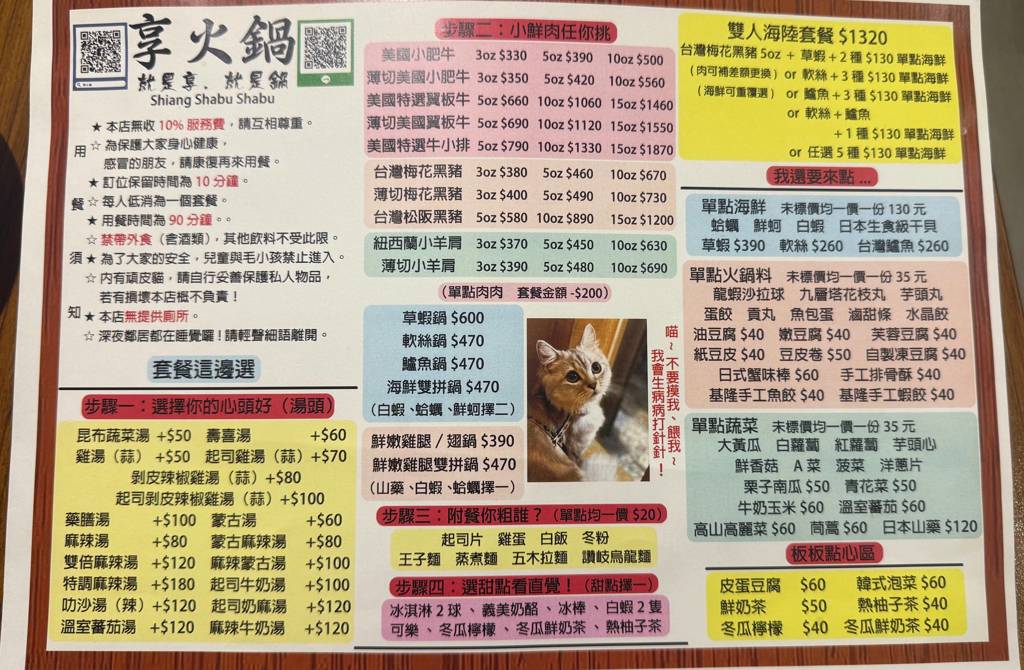 享火鍋
就是享、就是鍋
Shiang Shabu Shabu
用餐須知
★ 本店無收 10% 服務費，請互相尊重。
☆ 為保護大家身心健康，
感冒的朋友，請康復再來用餐。
★ 訂位保留時間為 10 分鐘。
☆ 每人低消為一個套餐。
★ 用餐時間為 90 分鐘。。
☆ 禁帶外食（含酒類），其他飲料不受此限。
★ 為了大家的安全，兒童與毛小孩禁止進入。
☆ 內有頑皮貓，請自行妥善保護私人物品，
若有損壞本店概不負責！
★ 本店無提供廁所。
☆ 深夜鄰居都在睡覺囉！請輕聲細語離開。
套餐這邊選
步驟一：選擇你的心頭好（湯頭）
昆布蔬菜湯 +$50 壽喜湯 +$60
雞湯（蒜） +$50 起司雞湯（蒜）+$70
剝皮辣椒雞湯（蒜）+$80
起司剝皮辣椒雞湯（蒜）+$100
藥膳湯 +$100 蒙古湯 +$60
麻辣湯 +$80 蒙古麻辣湯 +$80
雙倍麻辣湯 +$120 麻辣蒙古湯 +$100
特調麻辣湯 +$180 起司牛奶湯 +$100
叻沙湯（辣）+$120 起司奶麻湯 +$120
溫室蕃茄湯 +$120 麻辣牛奶湯 +$120
步驟二：小鮮肉任你挑
美國小肥牛 3oz $330 5oz $390 10oz $500
薄切美國小肥牛 3oz $350 5oz $420 10oz $560
美國特選翼板牛 5oz $660 10oz $1060 15oz $1460
薄切美國翼板牛 5oz $690 10oz $1120 15oz $1550
美國特選牛小排 5oz $790 10oz $1330 15oz $1870
台灣梅花黑豬 3oz $380 5oz $460 10oz $670
薄切梅花黑豬 3oz $400 5oz $490 10oz $730
台灣松阪黑豬 5oz $580 10oz $890 15oz $1200
紐西蘭小羊肩 3oz $370 5oz $450 10oz $630
薄切小羊肩 3oz $390 5oz $480 10oz $690
（單點肉肉 套餐金額 -$200）
草蝦鍋 $600
軟絲鍋 $470
鱸魚鍋 $470
海鮮雙拼鍋 $470
（白蝦、蛤蠣、鮮蚵擇二）
鮮嫩雞腿 / 翅鍋 $390
鮮嫩雞腿雙拼鍋 $470
（山藥、白蝦、蛤蠣擇一）
喵~ 不要摸我、餵我~
我會生病病打針針！
步驟三：附餐你粗誰？（單點均一價 $20）
起司片 雞蛋 白飯 冬粉
王子麵 蒸煮麵 五木拉麵 讚岐烏龍麵
步驟四：選甜點看直覺！（甜點擇一）
冰淇淋 2 球 、義美奶酪 、冰棒 、白蝦 2 隻
可樂 、冬瓜檸檬 、冬瓜鮮奶茶 、熱柚子茶
雙人海陸套餐 $1320
台灣梅花黑豬 5oz + 草蝦 + 2 種 $130 單點海鮮
（肉可補差額更換） or 軟絲 + 3 種 $130 單點海鮮
（海鮮可重覆選） or 鱸魚 + 3 種 $130 單點海鮮
or 軟絲 + 鱸魚
+ 1 種 $130 單點海鮮
or 任選 5 種 $130 單點海鮮
我還要來點 ...
單點海鮮 未標價均一價一份 130 元
蛤蠣 鮮蚵 白蝦 日本生食級干貝
草蝦 $390 軟絲 $260 台灣鱸魚 $260
單點火鍋料 未標價均一價一份 35 元
龍蝦沙拉球 九層塔花枝丸 芋頭丸
蛋餃 貢丸 魚包蛋 滷甜條 水晶餃
油豆腐 $40 嫩豆腐 $40 芙蓉豆腐 $40
紙豆皮 $40 豆皮卷 $50 自製凍豆腐 $40
日式蟹味棒 $60 手工排骨酥 $40
基隆手工魚餃 $40 基隆手工蝦餃 $40
單點蔬菜 未標價均一價一份 35 元
大黃瓜 白蘿蔔 紅蘿蔔 芋頭心
鮮香菇 A 菜 菠菜 洋蔥片
栗子南瓜 $50 青花菜 $50
牛奶玉米 $60 溫室蕃茄 $60
高山高麗菜 $60 茼蒿 $60 日本山藥 $120
板板點心區
皮蛋豆腐 $60 韓式泡菜 $60
鮮奶茶 $50 熱柚子茶 $40
冬瓜檸檬 $40 冬瓜鮮奶茶 $40